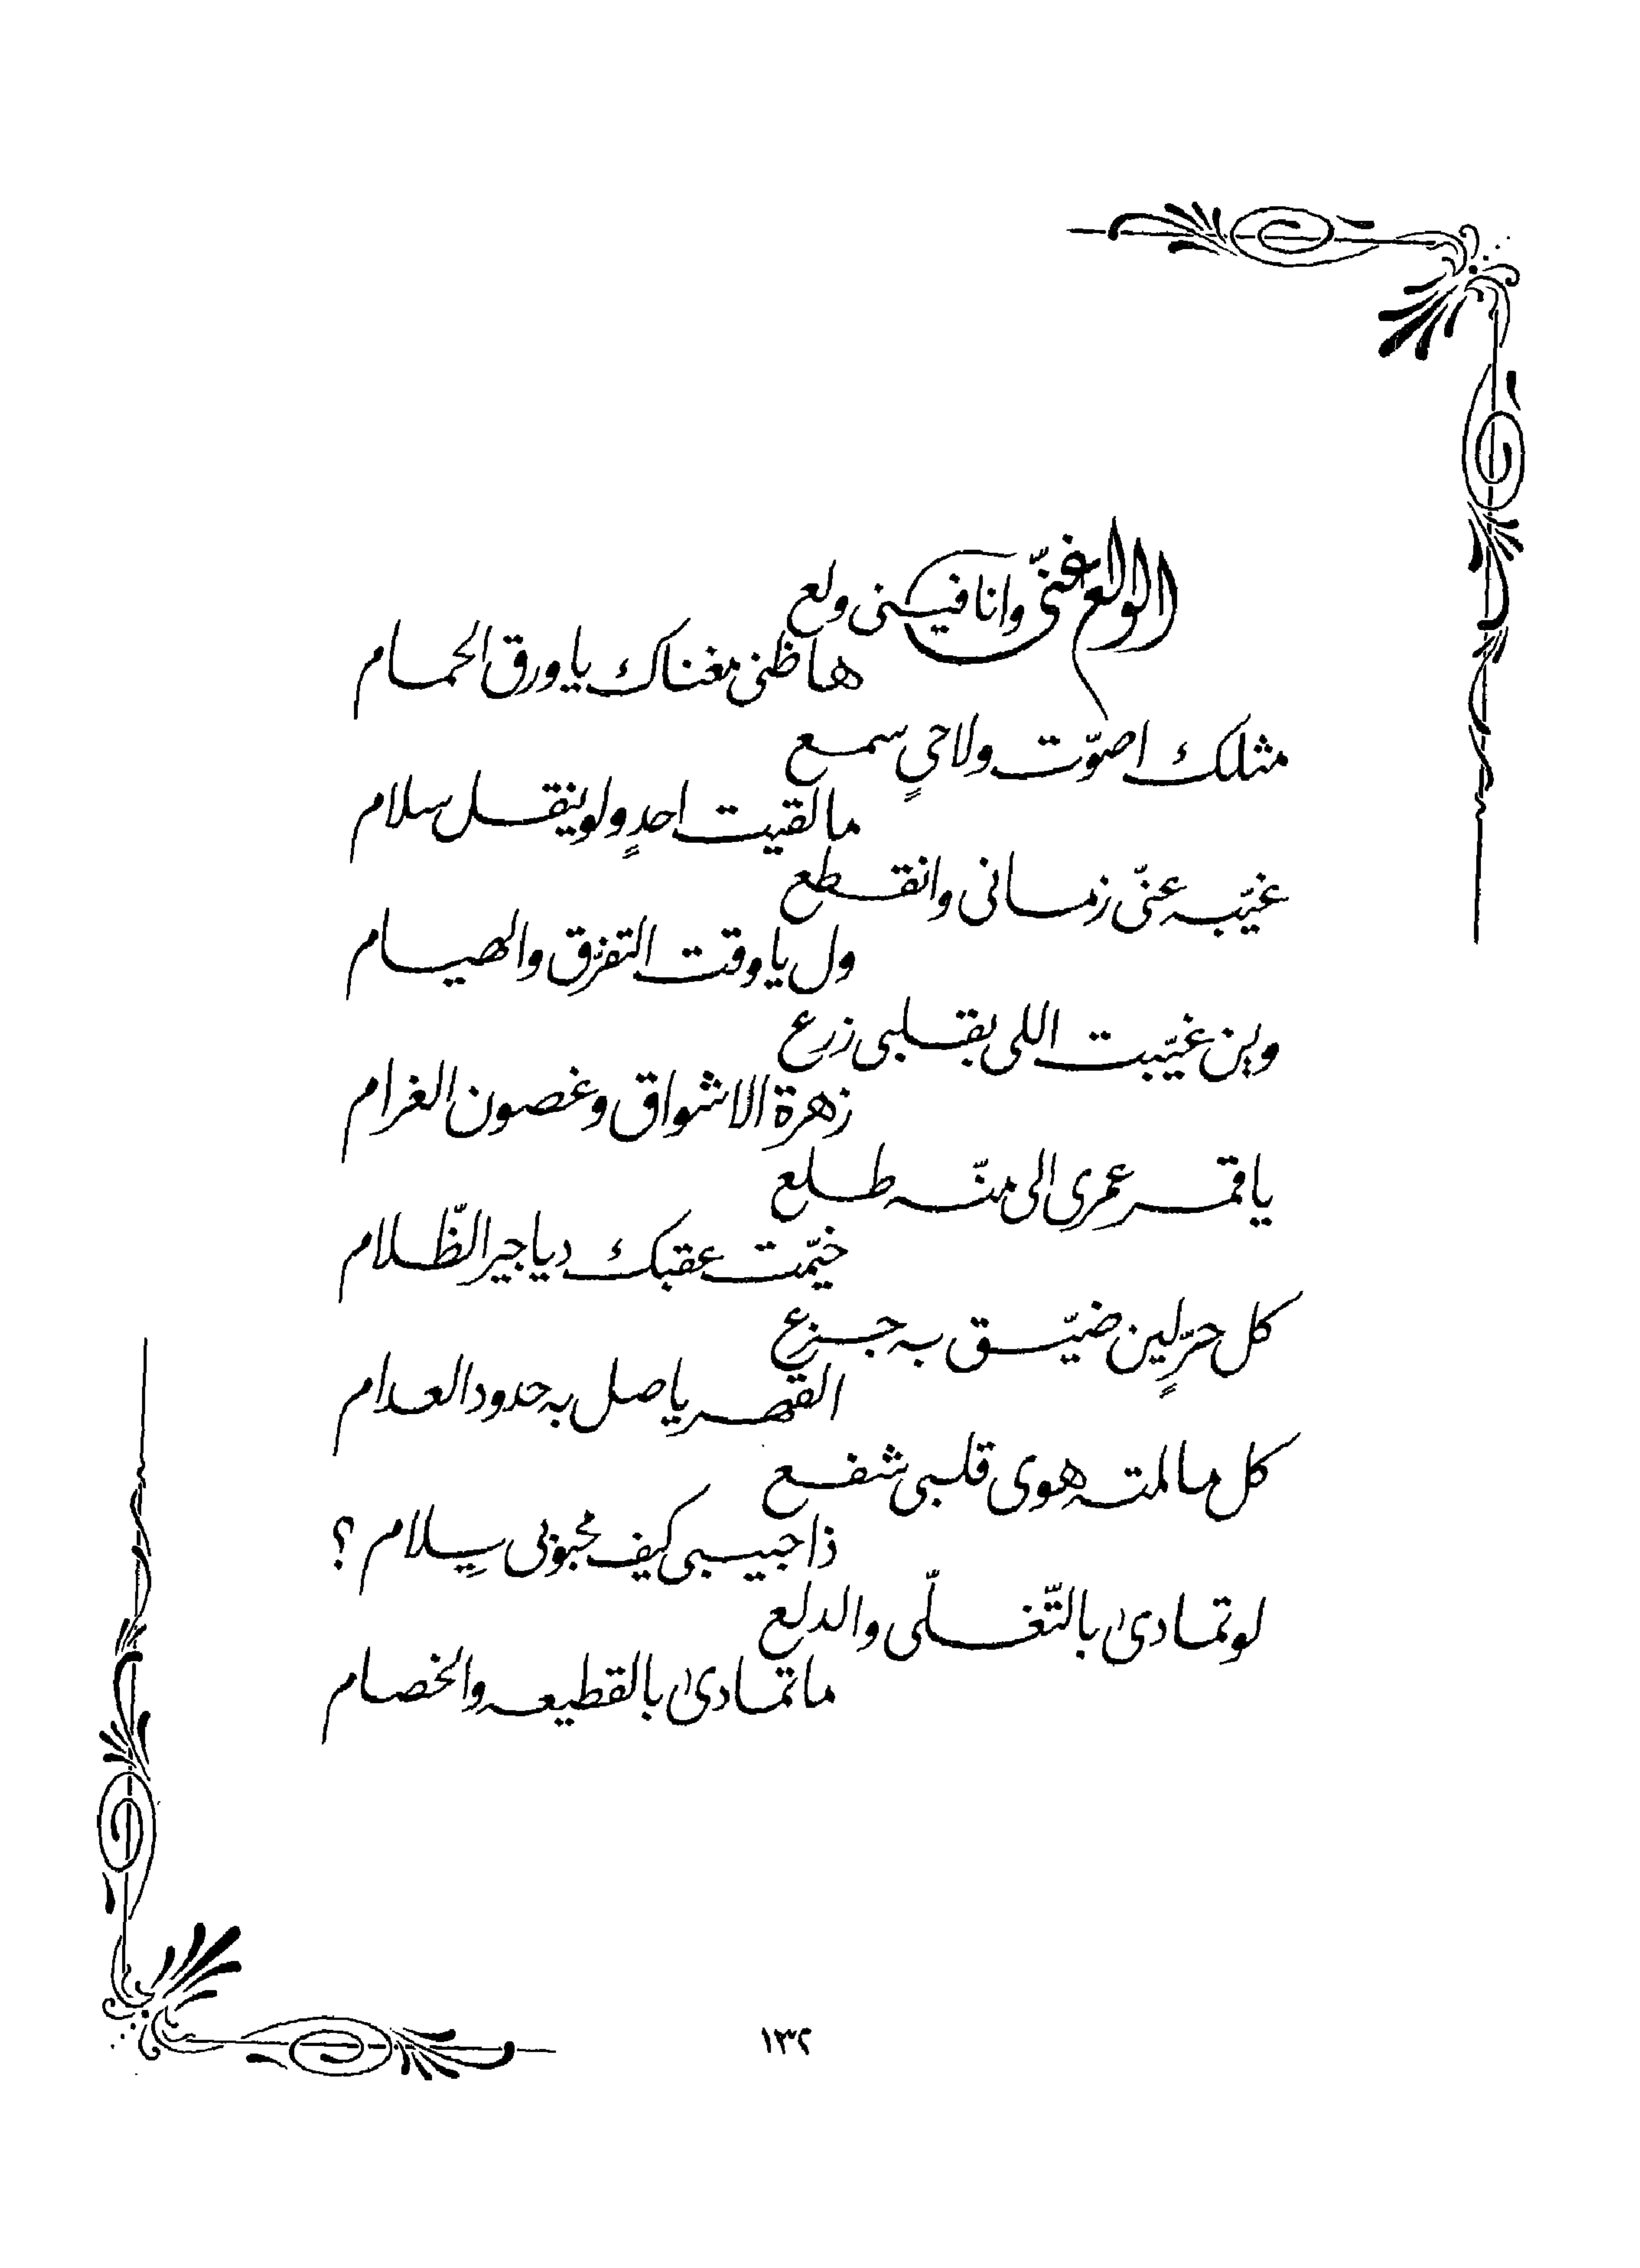 الولع غنّى وانا فيني ولع
هاظني مغناك يا ورق الحمام
مثلك اصوّت ولا حيٍ سمع
ما لقيت احدٍ ولو ينقل سلام
غيّبه عنّي زماني وانقطع
ول يا وقت التفرّق والهيام
وين غيّبت اللي بقلبي زرع
زهرة الاشواق وغصون الغرام
يا قمر عمري الى منّه طلع
خيّمت عقبك دياجير الظّلام
كل حرٍّ لين ضيّق به جزع
القهر ياصل به حدود العدام
كل ما لمته هوى قلبي شفع
ذا حبيبي كيف محبوبي يِلام ؟
لو تمادىٰ بالتّغلّي والدلع
ما تمادىٰ بالقطيعه والخصام
١٣٢